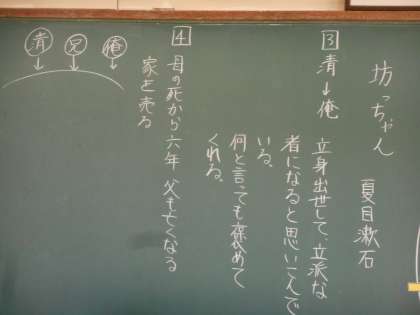 坊っちゃん
夏目漱石
3 清→俺
立身出世して、立派な
者になると思いこんで
いる。
何と言っても褒めて
くれる。
4 母の死から六年 父も亡くなる
家を売る
俺
兄
清